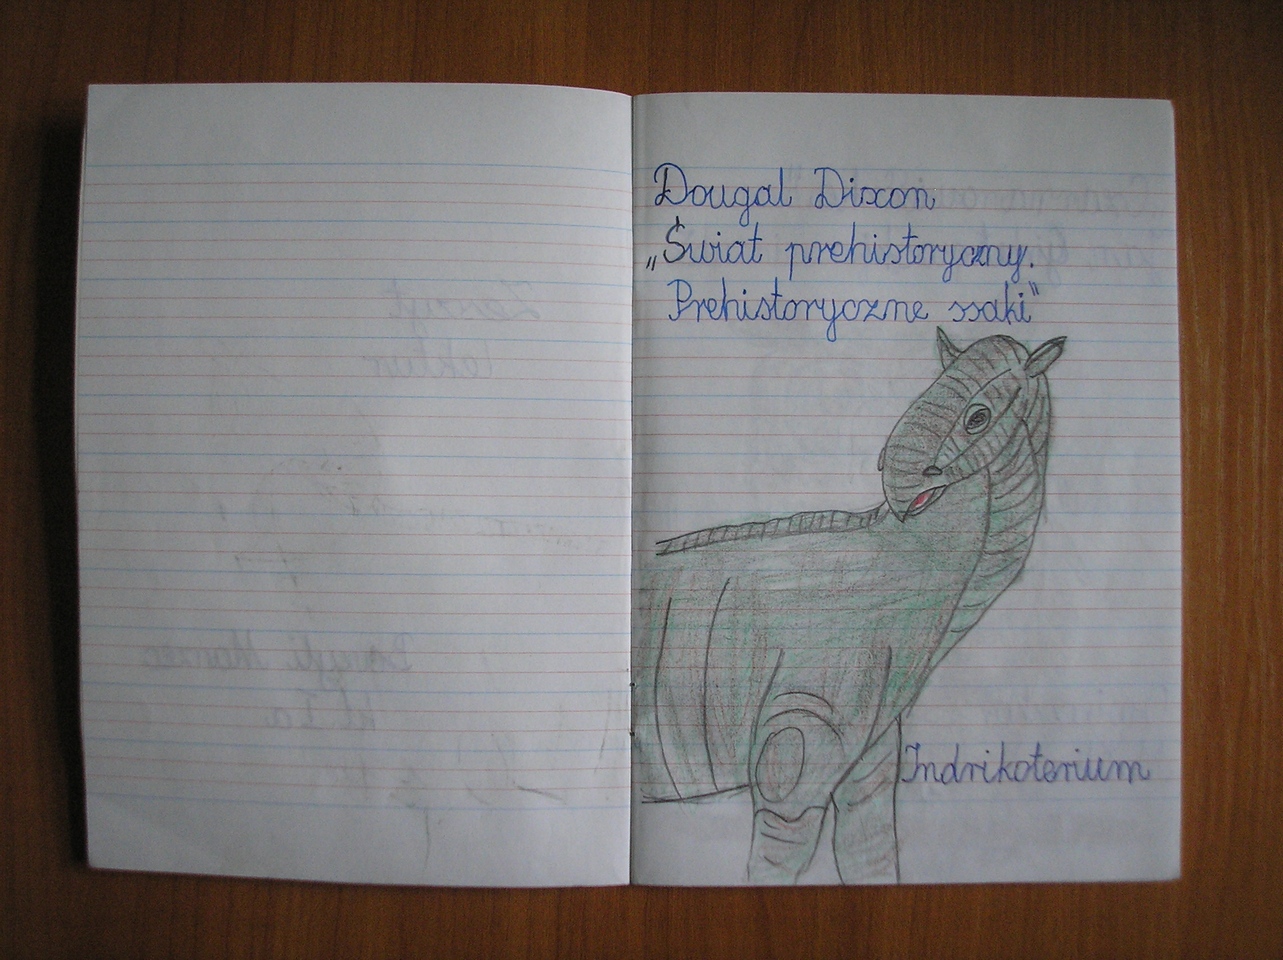 Dougal Dixon
„Świat prehistoryczny.
Prehistoryczne ssaki"
Indrikoterium